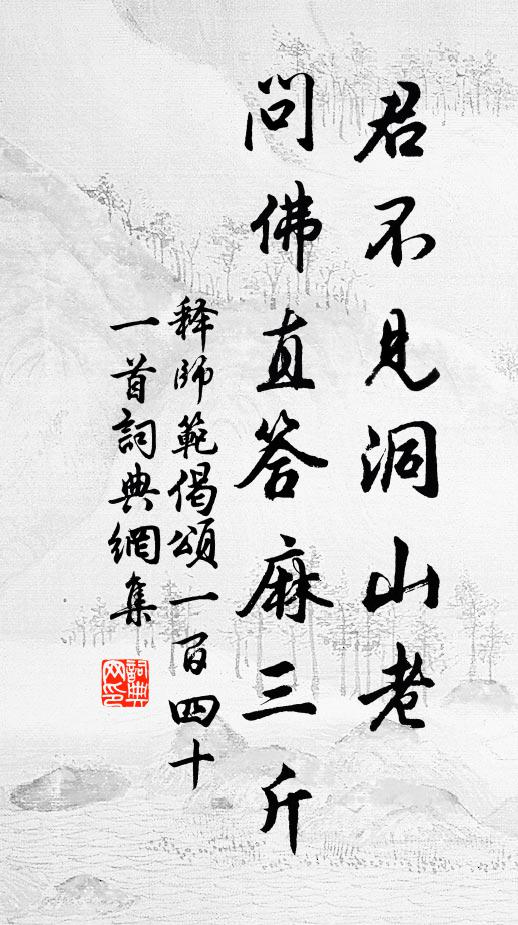 君不見洞山老
問佛直答麻三斤
釋師範偈頌一百四十
一首詞典網集
詞典网印